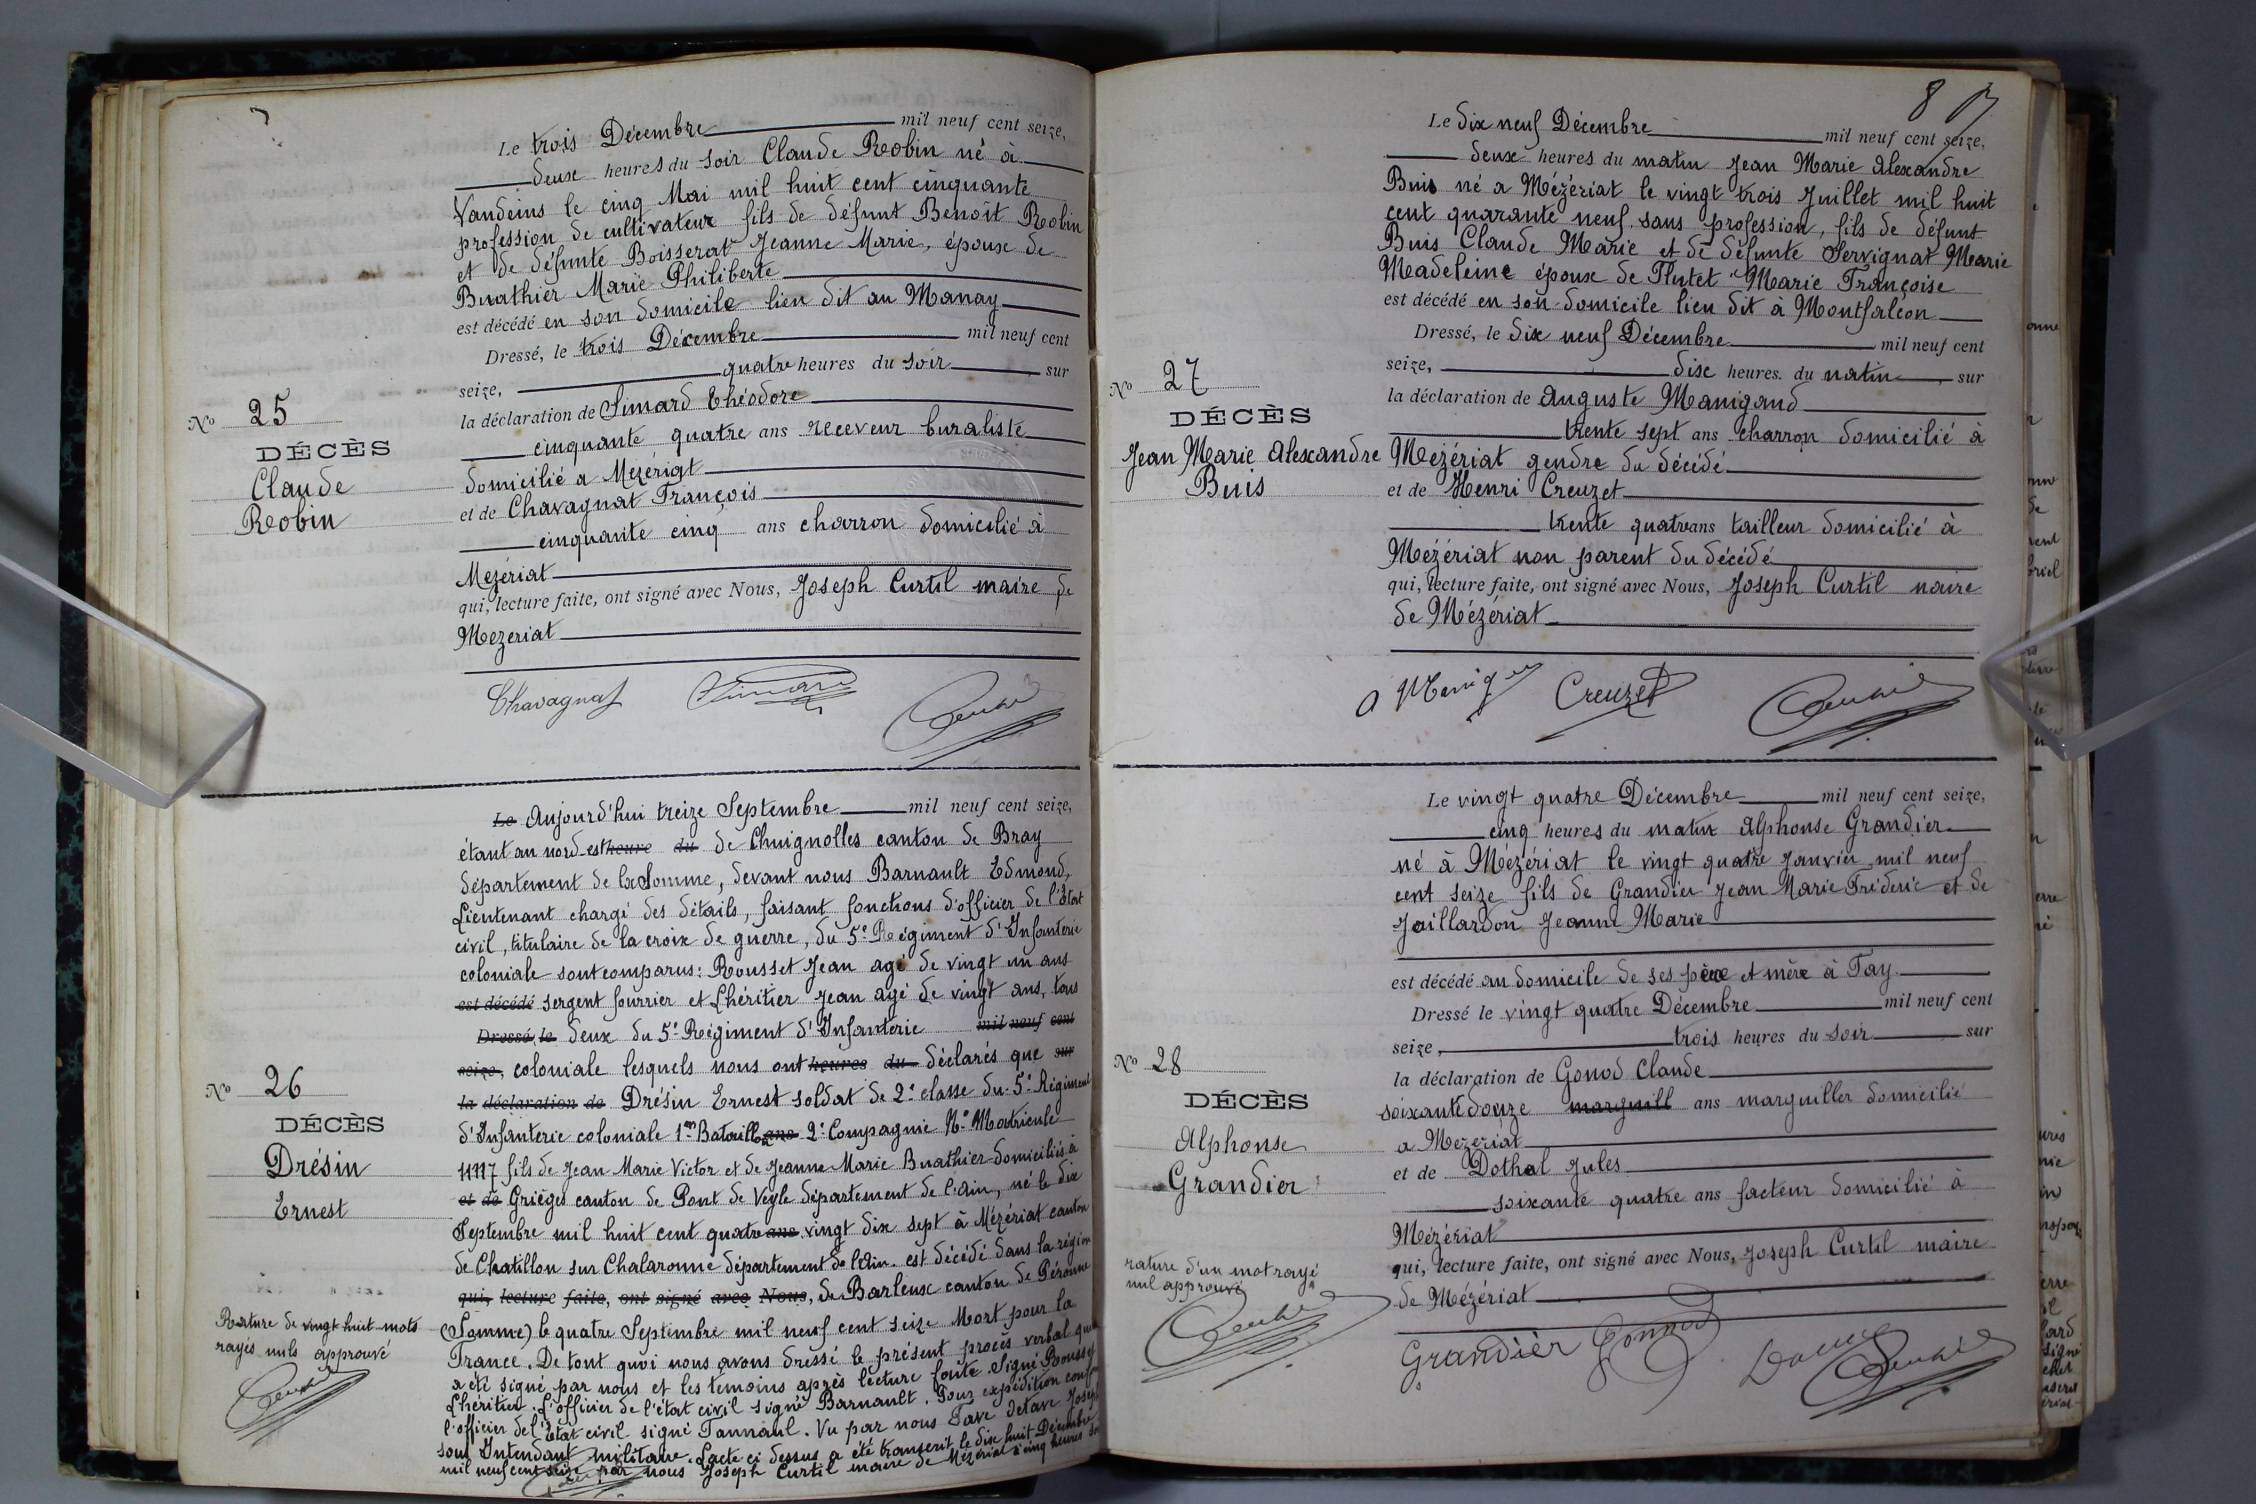 Le trois Décembre mil neuf cent seize,
deux heures du soir Claude Robin né à
Vandeins le cinq Mai mil huit cent cinquante
profession de cultivateur fils de défunt Benoît Robin
et de défunte Boisserat Jeanne Marie, époux de
Buathier Marie Philiberte
est décédé en son domicile lieu dit au Manay
Dressé, le trois Décembre mil neuf cent
seize, quatre heures du soir sur
la déclaration de Simard Théodore
cinquante quatre ans receveur buraliste
domicilié à Mézériat
et de Chavagnat François
cinquante cinq ans charron domicilié à
Mezériat
qui, lecture faite, ont signé avec Nous, Joseph Curtil maire de
Mezeriat
No 25
DÉCÈS
Claude
Robin
Chavagnat Simard
Le Aujourd'hui treize Septembre mil neuf cent seize,
étant au nord-est heure du de Chuignolles canton de Bray
département de la Somme, devant nous Barnault Edmond,
Lieutenant chargé des détails, faisant fonctions d'officier de l'État
civil, titulaire de la croix de guerre, du 5e Régiment d'Infanterie
coloniale sont comparus: Rousset Jean agé de vingt un ans
est décédé sergent fourrier et Lhéritier Jean agé de vingt ans, tous
Dressé, le deux du 5e Régiment d'Infanterie mil neuf cent
seize, coloniale lesquels nous ont heures du déclarés que sur
la déclaration de Drésin Ernest soldat de 2e classe du 5e Régiment
d'Infanterie coloniale 1er Bataillon ans 2e Compagnie No Matricule
11117 fils de Jean Marie Victor et de Jeanne Marie Buathier domiciliés à
et de Grièges canton de Pont de Veyle département de l'Ain, né le dix
Septembre mil huit cent quatre ans vingt dix sept à Mézériat canton
de Chatillon sur Chalaronne département de l'Ain. est décédé dans la région
qui, lecture faite, ont signé avec Nous, de Barleux canton de Péronne
(Somme) le quatre Septembre mil neuf cent seize Mort pour la
France. De tout quoi nous avons dressé le présent procès verbal qui
a été signé par nous et les témoins après lecture faite. Signé Rousset
Lhéritier. L'officier de l'état civil signé Barnault. Pour expédition
l'officier de l'État civil signé Tannaul. Vu par nous Octave Joseph
sous Intendant militaire. L'acte ci dessus a été transcrit le dix huit Décembre
mil neuf cent seize par nous Joseph Curtil maire de Mézériat à cinq heures
No 26
DÉCÈS
Drésin
Ernest
Rature de vingt huit mots
rayés nuls approuvé
8
Le dix neuf Décembre mil neuf cent seize,
deux heures du matin Jean Marie Alexandre
Buis né a Mézériat le vingt trois Juillet mil huit
cent quarante neuf sans profession, fils de défunt
Buis Claude Marie et de défunte Servignat Marie
Madeleine époux de Flutet Marie Françoise
est décédé en son domicile lieu dit à Montfalcon
Dressé, le dix neuf Décembre mil neuf cent
seize, dix heures. du matin, sur
la déclaration de Auguste Manigand
trente sept ans charron domicilié à
Mezériat gendre du décédé
et de Henri Creuzet
trente quatre ans tailleur domicilié à
Mézériat non parent du décédé
qui, lecture faite, ont signé avec Nous, Joseph Curtil maire
de Mézériat
No 27
DÉCÈS
Jean Marie Alexandre
Buis
Creuzet
Le vingt quatre Décembre mil neuf cent seize,
cinq heures du matin Alphonse Grandier
né à Mézériat le vingt quatre Janvier mil neuf
cent seize fils de Grandier Jean Marie Fréderic et de
Jaillardon Jeanne Marie
est décédé au domicile de ses père et mère à Tay
Dressé le vingt quatre Décembre mil neuf cent
seize, trois heures du soir sur
la déclaration de Gonod Claude
soixante douze marguill ans marguiller domicilié
a Mezeriat
et de Dothal Jules
soixante quatre ans facteur domicilié à
Mézériat
qui, lecture faite, ont signé avec Nous, Joseph Curtil maire
de Mézériat
No 28
DÉCÈS
Alphonse
Grandier
rature d'un mot rayé
nul approuvé
Grandièr